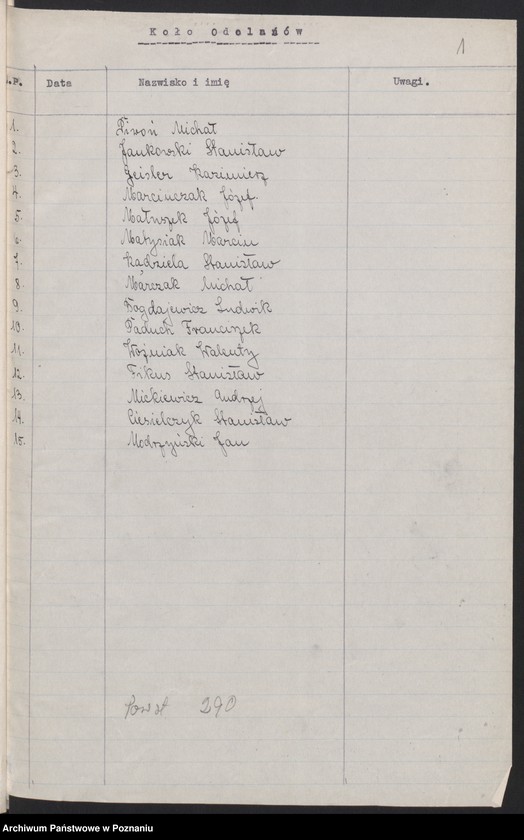 Koło Odolanów
1
L.P. Data Nazwisko i imię Uwagi.
1. Piwoń Michał
2. Jankowski Stanisław
3. Geisler Kazimierz
4. Marcinczak Józef.
5. Matuszek Józef
6. Matysiak Marcin
7. Kądziela Stanisław
8. Marczak Michał
9. Bogdajewicz Ludwik
10. Paduch Franciszek
11. Woźniak Walenty
12. Fikus Stanisław
13. Mickiewicz Andrzej
14. Ciesielczyk Stanisław
15. Modrzyński Jan
290
Archiwum Państwowe w Poznaniu